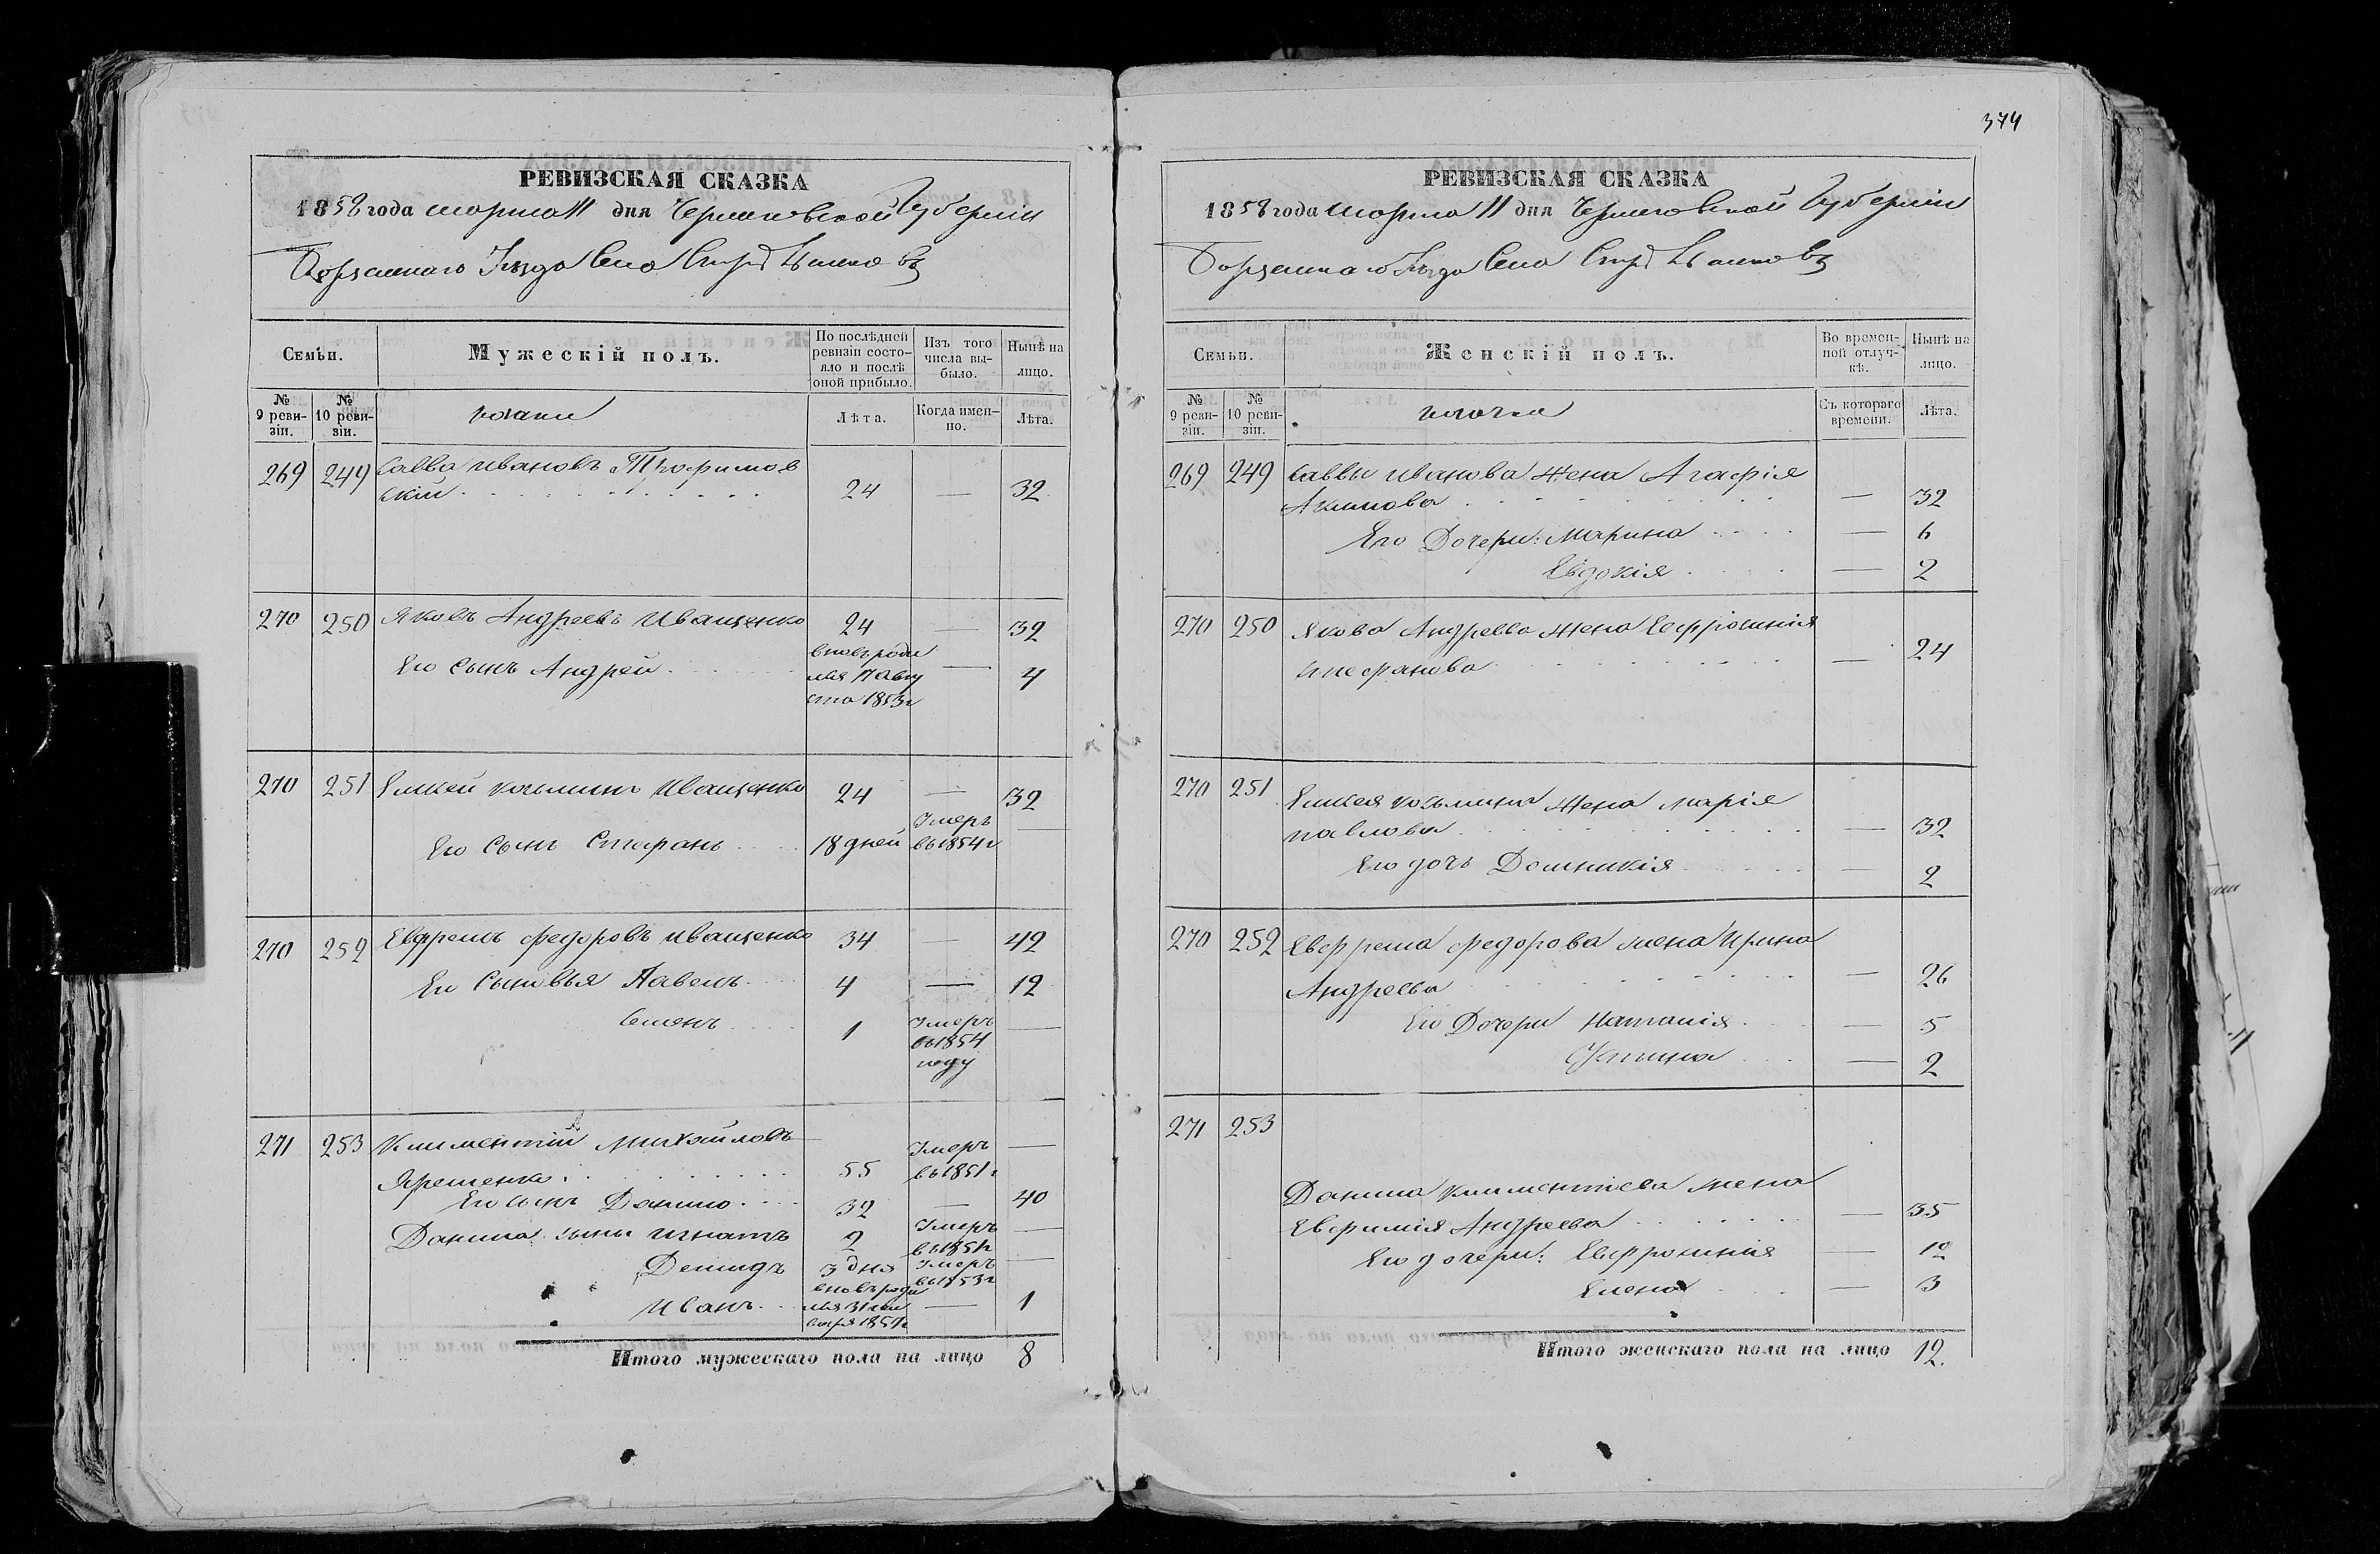 РЕВИЗСКАЯ СКАЗКА
1858 года марта 11 дня Черниговской Губерніи
Борзенскаго Уѣзда Села
Семьи.
Мужескій полъ.
По послѣдней ревизіи состояло и послѣ оной прибыло.
Изъ того числа выбыло.
Нынѣ на лицо.
№ 9 ревизіи.
№ 10 ревизіи.
козаки
Лѣта.
Когда именно.
Лѣта.
269 249 Савва Ивановъ Трофимов
скій 24 — 32
270 250 Яковъ Андреевъ Иващенко 24 — 32
Его сынъ Андрей вновь роди
лся 17 Авгу
ста 1853 г — 4
270 251 Елисей Козьминъ Иващенко 24 — 32
Его Сынъ Стефанъ 18 дней Умеръ
въ 1854 г —
270 252 Евфремъ Федоровъ Иващенко 34 — 42
Его Сыновья Павелъ 4 — 12
Семенъ 1 Умеръ
въ 1854
году —
271 253 Климентій Михайловъ
Яременко 55 Умеръ
въ 1851 г —
Его сынъ Данило 32 — 40
Данила сыны Игнатъ 2 Умеръ
въ 1851 г —
Демидъ 3 дня Умеръ
въ 1853 г —
Иванъ вновь роди
лся 31 — 1
Итого мужескаго пола на лицо 8
374
РЕВИЗСКАЯ СКАЗКА
1858 года марта 11 дня Черниговской Губерніи
Борзенскаго Уѣзда Села
Семьи.
Женскій полъ.
Во временной отлучкѣ.
Нынѣ на лицо.
№ 9 ревизіи.
№ 10 ревизіи.
Съ котораго времени.
Лѣта.
269 249 Саввы Иванова жена Агафія
Акимова — 32
Его Дочери: Марина — 6
Евдокія — 2
270 250 Якова Андреева жена Евфросинія
Стефанова — 24
270 251 Елисея Козьмина жена Марія
Павлова — 32
Его дочь Домникія — 2
270 252 Евфрема Федорова жена Ирина
Андреева — 26
Его Дочери Наталія — 5
Устина — 2
271 253
Данила Климентіева жена
Евфимія Андреева — 35
Его дочери: Евфросинія — 12
Елена — 3
Итого женскаго пола на лицо 12.